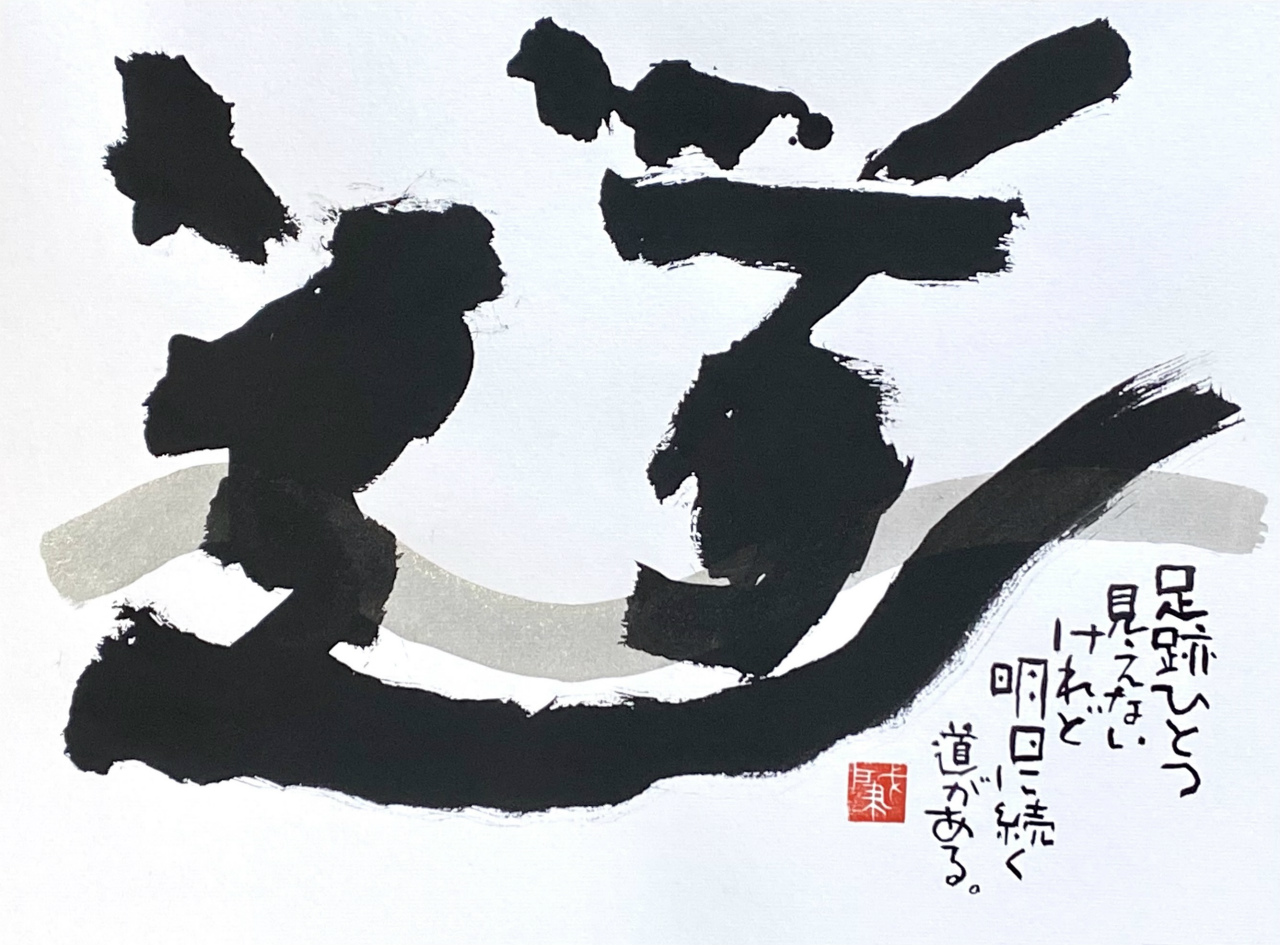 道
足跡ひとつ
見えない
けれど
明日に続く
道がある。